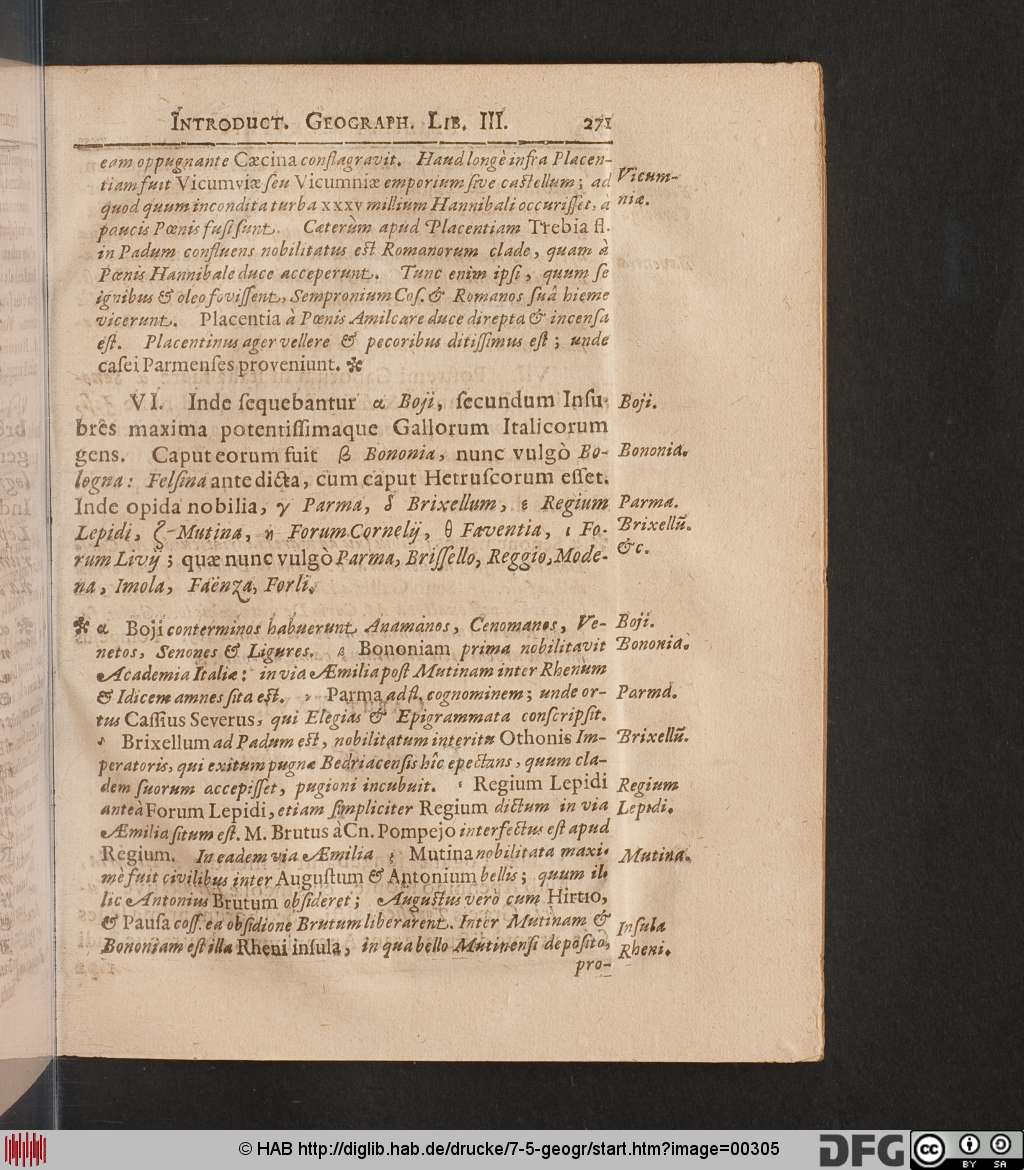 INTRODUCT. GEOGRAPH. LIB. III. 271
eam oppugnante Cæcina conflagravit. Haud longè infra Placen-
tiam fuit Vicumviæ ſeu Vicumniæ emporium ſive caſtellum; ad
quod quum incondita turba xxxv millium Hannibali occuriſſet, a
paucis Pœnis fuſi ſunt. Cæterùm apud Placentiam Trebia fl.
in Padum confluens nobilitatus eſt Romanorum clade, quam à
Pœnis Hannibale duce acceperunt. Tunc enim ipſi, quum ſe
ignibus & oleo foviſſent, Sempronium Coſ. & Romanos ſuâ hieme
vicerunt. Placentia à Pœnis Amilcare duce direpta & incenſa
eſt. Placentinus ager vellere & pecoribus ditiſſimus eſt; unde
caſei Parmenſes proveniunt. ✻
Vicum-
niæ.
VI. Inde ſequebantur α Boji, ſecundum Inſu-
bres maxima potentiſſimaque Gallorum Italicorum
gens. Caput eorum fuit β Bononia, nunc vulgò Bo-
logna: Felſina ante dicta, cum caput Hetruſcorum eſſet.
Inde opida nobilia, γ Parma, δ Brixellum, ε Regium
Lepidi, ζ Mutina, η Forum Cornelij, θ Faventia, ι Fo-
rum Livij; quæ nunc vulgò Parma, Briſſello, Reggio, Mode-
na, Imola, Faenza, Forli.
Boji.
Bononia.
Parma.
Brixellũ.
&c.
✻ α Boji conterminos habuerunt Anamanos, Cenomanos, Ve-
netos, Senones & Ligures. β Bononiam prima nobilitavit
Academia Italiæ: in via Æmilia poſt Mutinam inter Rhenum
& Idicem amnes ſita eſt. γ Parma ad fl. cognominem; unde or-
tus Caſſius Severus, qui Elegias & Epigrammata conſcripſit.
δ Brixellum ad Padum eſt, nobilitatum interitu Othonis Im-
peratoris, qui exitum pugnæ Bedriacenſis hîc epectans, quum cla-
dem ſuorum accepiſſet, pugioni incubuit. ε Regium Lepidi
anteà Forum Lepidi, etiam ſimpliciter Regium dictum in via
Æmilia ſitum eſt. M. Brutus à Cn. Pompejo interfectus eſt apud
Regium. In eadem via Æmilia ζ Mutina nobilitata maxi-
mè fuit civilibus inter Auguſtum & Antonium bellis; quum il-
lic Antonius Brutum obſideret; Auguſtus verò cum Hirtio,
& Pauſa coſſ. ea obſidione Brutum liberarent. Inter Mutinam &
Bononiam eſt illa Rheni inſula, in qua bello Mutinenſi depoſito,
pro-
Boji.
Bononia.
Parma.
Brixellũ.
Regium
Lepidi.
Mutina.
Inſula
Rheni.
© HAB http://diglib.hab.de/drucke/7-5-geogr/start.htm?image=00305
DFG
cc
BY SA